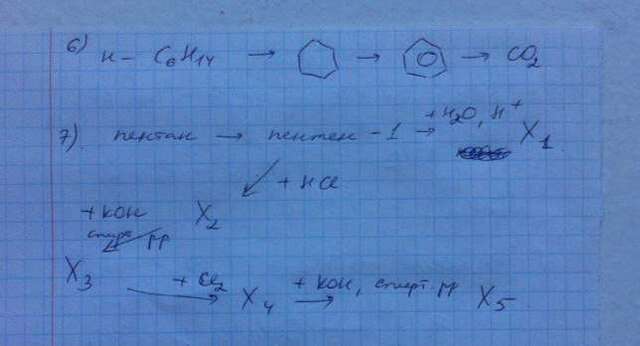 6) н - C6H14 → → → CO2
7) пентан → пентен -1 +H2O, H+ → X1
+ HCl
+ KOH X2
спирт рр
X3 + Cl2 → X4 + KOH, спирт. рр → X5